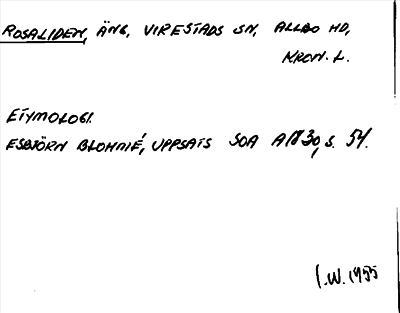 ROSALIDEN, ÄNG, VIRESTADS SN, ALLBO HD,
KRON. L.
ETYMOLOGI.
ESBJÖRN BLOHMÉ, UPPSATS SOA A830, S. 54.
I.W. 1955